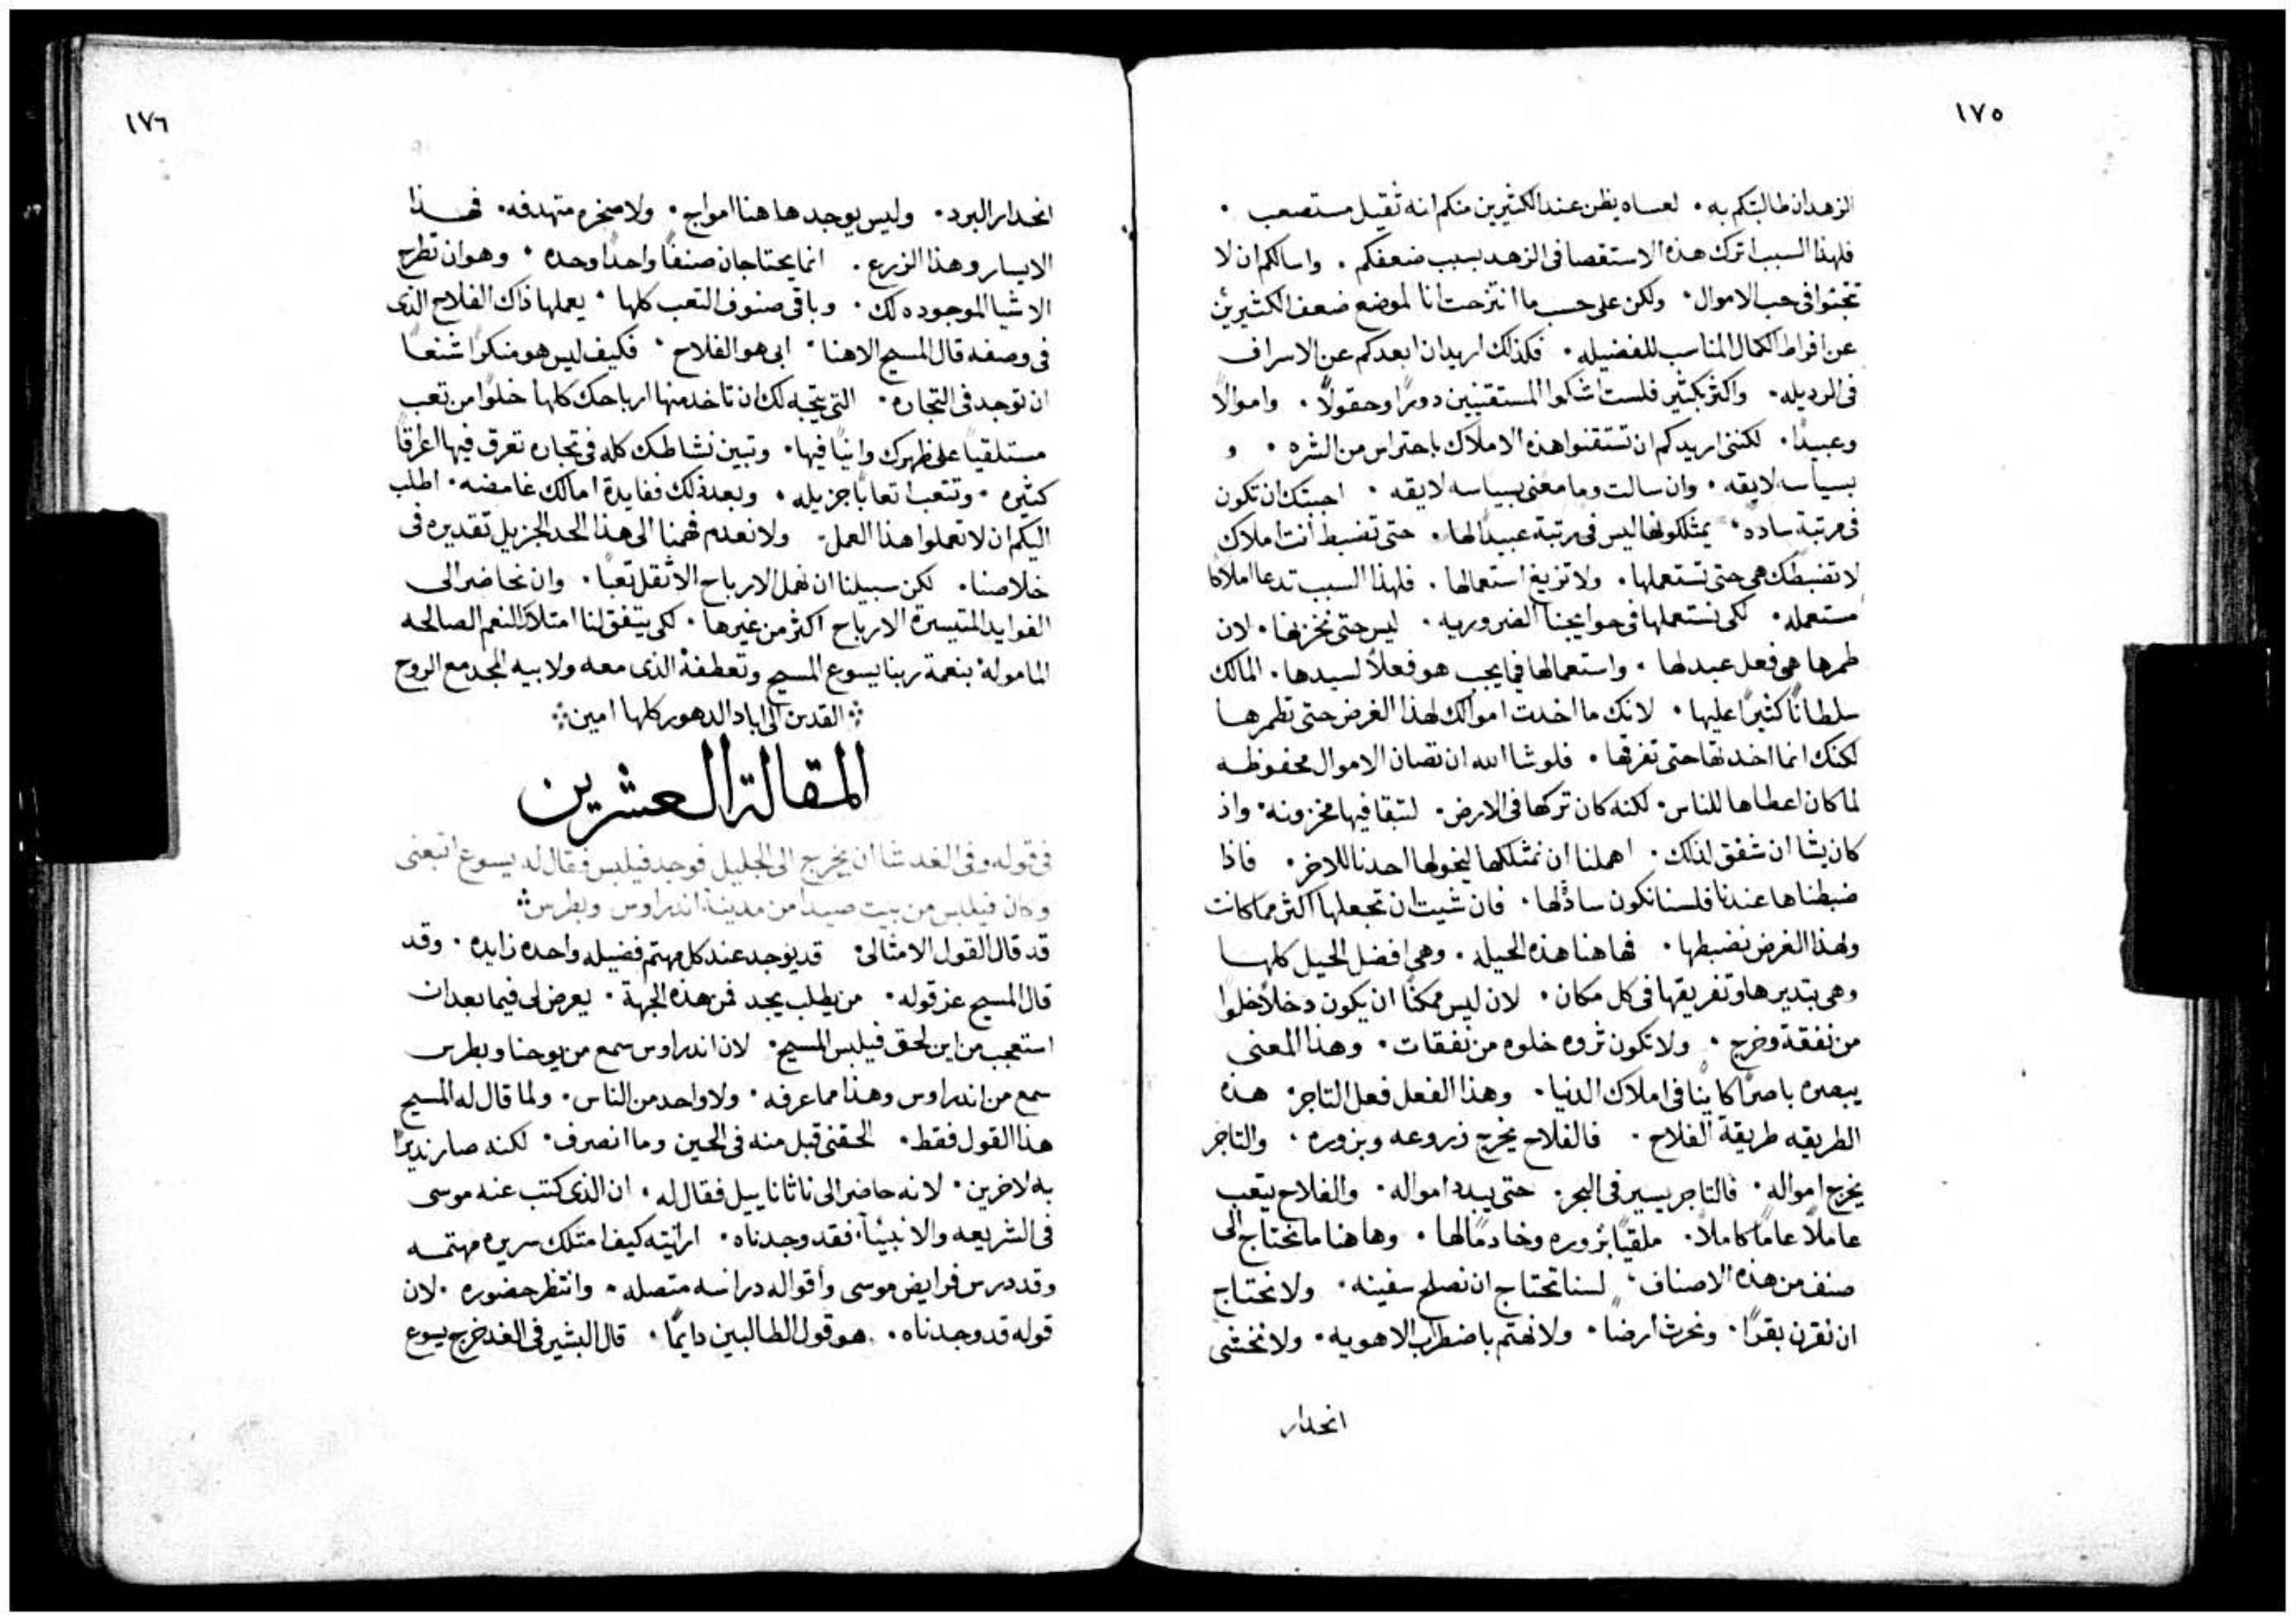 ١٧٥
الزهد ان طالبتكم به۰ لعساه يظن عند الكثيرين منكم انه ثقيل مستصعب ۰
فلهذا السبب اترك هذه الاستقصا فى الزهد بسبب ضعفكم ۰ واسالكم ان لا
فى حب الاموال۰ ولكن على حسب ما انتزحت انا لموضع ضعف الكثيرين
عن افراط الكمال المناسب للفضيله۰ فكذلك اريد ان ابعدكم عن الاسراف
فى الرديله۰ واكثر بكثير فلست اشكوا المستقنيين دورًا وحقولاً ۰ واموالاً
وعبيدًا۰ لكننى اريدكم ان تستقنوا هذه الاملاك باحتراس من الشره ۰ و
بسياسه لايقه۰ وان سالت وما معنى بسياسه لايقه ۰ اجبتك ان تكون
فى مرتبة ساده۰ يمتلكونها ليس فى مرتبة عبيدًا لها۰ حتى تضبط انت املاك
لا تضبطك هى حتى تستعملها۰ ولا تزيغ استعمالها۰ فلهذا السبب تدعا املاكًا
مستعمله۰ لكى نستعملها فى حوايجنا الضروريه ۰ ليس حتى نخزنها۰ لان
طمرها هى فعل عبد لها ۰ واستعمالها فيما يجب هو فعلاً لسيدها۰ المالك
سلطانًا كثيرًا عليها ۰ لانك ما اخدت اموالك لهذا الغرض حتى تطمرها
لكنك انما اخدتها حتى تفرقها ۰ فلو شا الله ان تصان الاموال محفوظه
لما كان اعطاها للناس۰ لكنه كان تركها فى الارض۰ لتبقا فيها مخزونه۰ واذ
كان يشا ان شفق لذلك۰ اهملنا ان نمتلكها ليخولها احدنا للاخر۰ فاذا
ضبطناها عندنا فلسنا نكون سادًا لها۰ فان شيت ان تجعلها اكثر مما كانت
ولهذا الغرض تضبطها۰ فها هنا هذه الحيله۰ وهى افضل الحيل كلها
وهى بتديرها وتفريقها فى كل مكان۰ لان ليس ممكنًا ان يكون دخلاً خلوًا
من نفقة وخرج ۰ ولا تكون ثروه خلوه من نفقات۰ وهذا المعنى
يبصره باصرًا كاينًا فى املاك الدنيا۰ وهذا الفعل فعل التاجر۰ هذه
الطريقه طريقة الفلاح ۰ فالفلاح يخرج زروعه وبزوره ۰ والتاجر
يخرج امواله۰ فالتاجر يسير فى البحر۰ حتى يبدد امواله۰ والفلاح يتعب
عاملاً عامًا كاملاً۰ ملقيًا بزوره وخادمًا لها ۰ وها هنا ما تحتاج الى
صنف من هذه الاصناف۰ لسنا نحتاج ان نصلح سفينه۰ ولا نحتاج
ان نقرن بقرًا۰ ونحرث ارضًا۰ ولا نهتم باضطراب الاهويه۰ ولا نخشى
انحدار
١٧٦
انحدار البرد۰ وليس يوجد ها هنا امواج۰ ولا صخره متهدفه۰ فهذا
الايسار وهذا الزرع ۰ انما يحتاجان صنفًا واحدًا وحده ۰ وهو ان تطرح
الاشيا الموجوده لك۰ وباقى صنوف التعب كلها ۰ يعملها ذاك الفلاح الذى
فى وصفه قال المسيح الاهنا۰ ابى هو الفلاح ۰ فكيف ليس هو منكرًا شنعًا
ان توجد فى التجاره۰ التى يتجه لك ان تاخد منها ارباحك كلها خلوًا من تعب
مستلقيًا على ظهرك وانيًا فيها۰ وتبين نشاطك كله فى تجاره تعرق فيها اعراقًا
كثيره ۰ وتتعب اتعابًا جزيله ۰ وبعد ذلك ففايدة امالك غامضه۰ اطلب
اليكم ان لا تعملوا هذا العمل۰ ولا نعدم فهمنا الى هذا الحد الجزيل تقديره فى
خلاصنا۰ لكن سبيلنا ان نهمل الارباح الاثقل تعبًا۰ وان نحاضر الى
الفوايد المتيسرة الارباح اكثر من غيرها ۰ لكى يتفق لنا امتلاك النعم الصالحه
الماموله۰ بنعمة ربنا يسوع المسيح وتعطفه الذى معه ولابيه المجد مع الروح
القدس الى اباد الدهور كلها امين
المقالة العشرين
فى قوله وفى الغد شا ان يخرج الى الجليل فوجد فيلبس فقال له يسوع اتبعنى
وكان فيلبس من بيت صيدا من مدينة اندراوس وبطرس
قد قال القول الامثالى۰ قد يوجد عند كل مهتم فضيله واحده زايده ۰ وقد
قال المسيح عز قوله۰ من يطلب يجد فمن هذه الجهة ۰ يعرض لى فيما بعد ان
استعجب من اين لحق فيلبس المسيح۰ لان اندراوس سمع من يوحنا وبطرس
سمع من اندراوس وهذا مما عرفه۰ ولا واحد من الناس۰ ولما قال له المسيح
هذا القول فقط۰ الحقنى قبل منه فى الحين وما انصرف۰ لكنه صار نديرًا
به لاخرين۰ لانه حاضر الى ناثاناييل فقال له۰ ان الذى كتب عنه موسى
فى الشريعه والانبيآ۰ فقد وجدناه۰ ارايته كيف امتلك سريره مهتمه
وقد درس فرايض موسى واقواله دراسه متصله۰ وانتظر حضوره ۰ لان
قوله قد وجدناه۰ هو قول الطالبين دايمًا۰ قال البشير فى الغد خرج يسوع